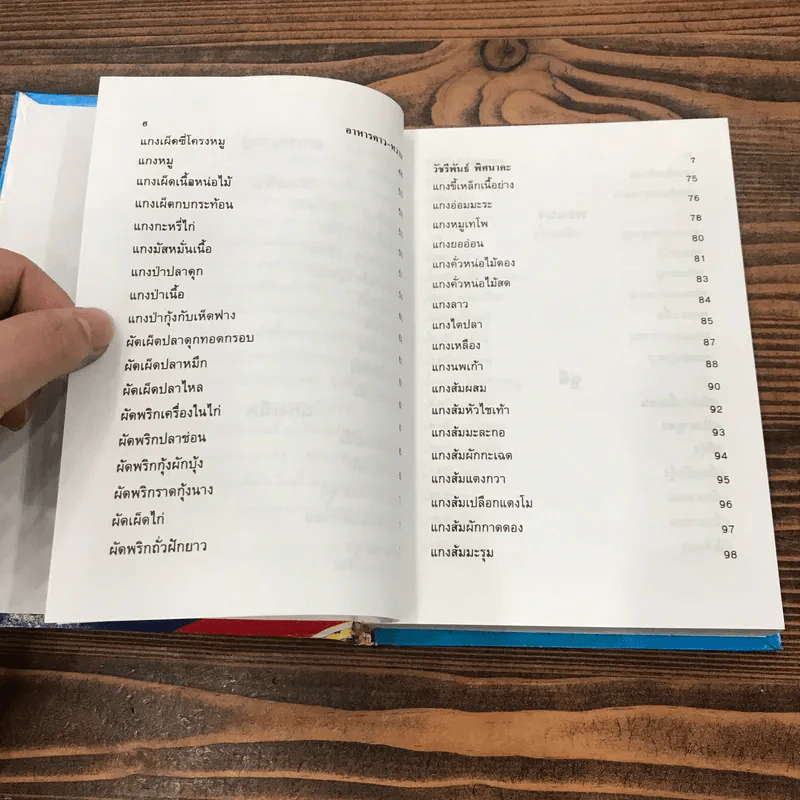 ๖
อาหารคาว-หวาน
แกงเผ็ดซี่โครงหมู
แกงหมู
แกงเผ็ดเนื้อหน่อไม้
แกงเผ็ดกบกระท้อน
แกงกะหรี่ไก่
แกงมัสหมั่นเนื้อ
แกงป่าปลาดุก
แกงป่าเนื้อ
แกงป่ากุ้งกับเห็ดฟาง
ผัดเผ็ดปลาดุกทอดกรอบ
ผัดเผ็ดปลาหมึก
ผัดเผ็ดปลาไหล
ผัดพริกเครื่องในไก่
ผัดพริกปลาช่อน
ผัดพริกกุ้งผักบุ้ง
ผัดพริกราดกุ้งนาง
ผัดเผ็ดไก่
ผัดพริกถั่วฝักยาว
วัชรีพันธ์ พิศนาคะ 7
แกงขี้เหล็กเนื้อย่าง 75
แกงอ่อมมะระ 76
แกงหมูเทโพ 78
แกงยออ่อน 80
แกงคั่วหน่อไม้ดอง 81
แกงคั่วหน่อไม้สด 83
แกงลาว 84
แกงไตปลา 85
แกงเหลือง 87
แกงนพเก้า 88
แกงส้มผสม 90
แกงส้มหัวไชเท้า 92
แกงส้มมะละกอ 93
แกงส้มผักกะเฉด 94
แกงส้มแตงกวา 95
แกงส้มเปลือกแตงโม 96
แกงส้มผักกาดดอง 97
แกงส้มมะรุม 98